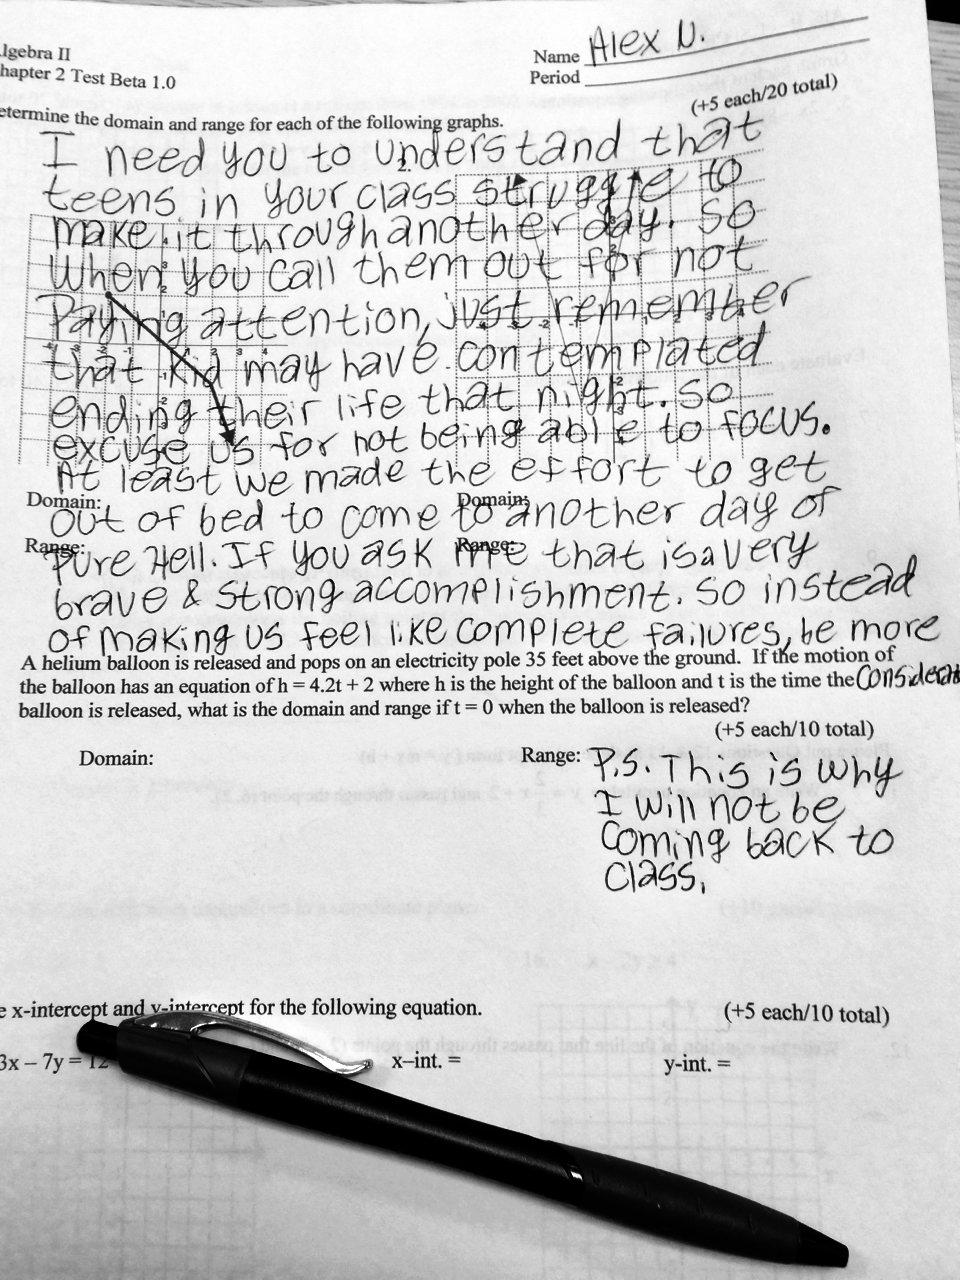 lgebra II
hapter 2 Test Beta 1.0
Name Alex N.
Period
(+5 each/20 total)
etermine the domain and range for each of the following graphs.
I need you to understand that
2.
teens in your class struggle to
make it through another day. So
when you call them out for not
Paying attention, just remember
that kid may have contemplated
ending their life that night. So
excuse us for not being able to focus.
At least we made the effort to get
Domain: Domain:
out of bed to come to another day of
Range: Range:
pure Hell. If you ask me that is a very
brave & strong accomplishment. So instead
of making us feel like complete failures, be more
A helium balloon is released and pops on an electricity pole 35 feet above the ground. If the motion of
the balloon has an equation of h = 4.2t + 2 where h is the height of the balloon and t is the time the
balloon is released, what is the domain and range if t = 0 when the balloon is released?
(+5 each/10 total)
Domain: Range: P.S. This is why
I will not be
coming back to
class.
e x-intercept and y-intercept for the following equation. (+5 each/10 total)
3x – 7y = 12 x–int. = y-int. =